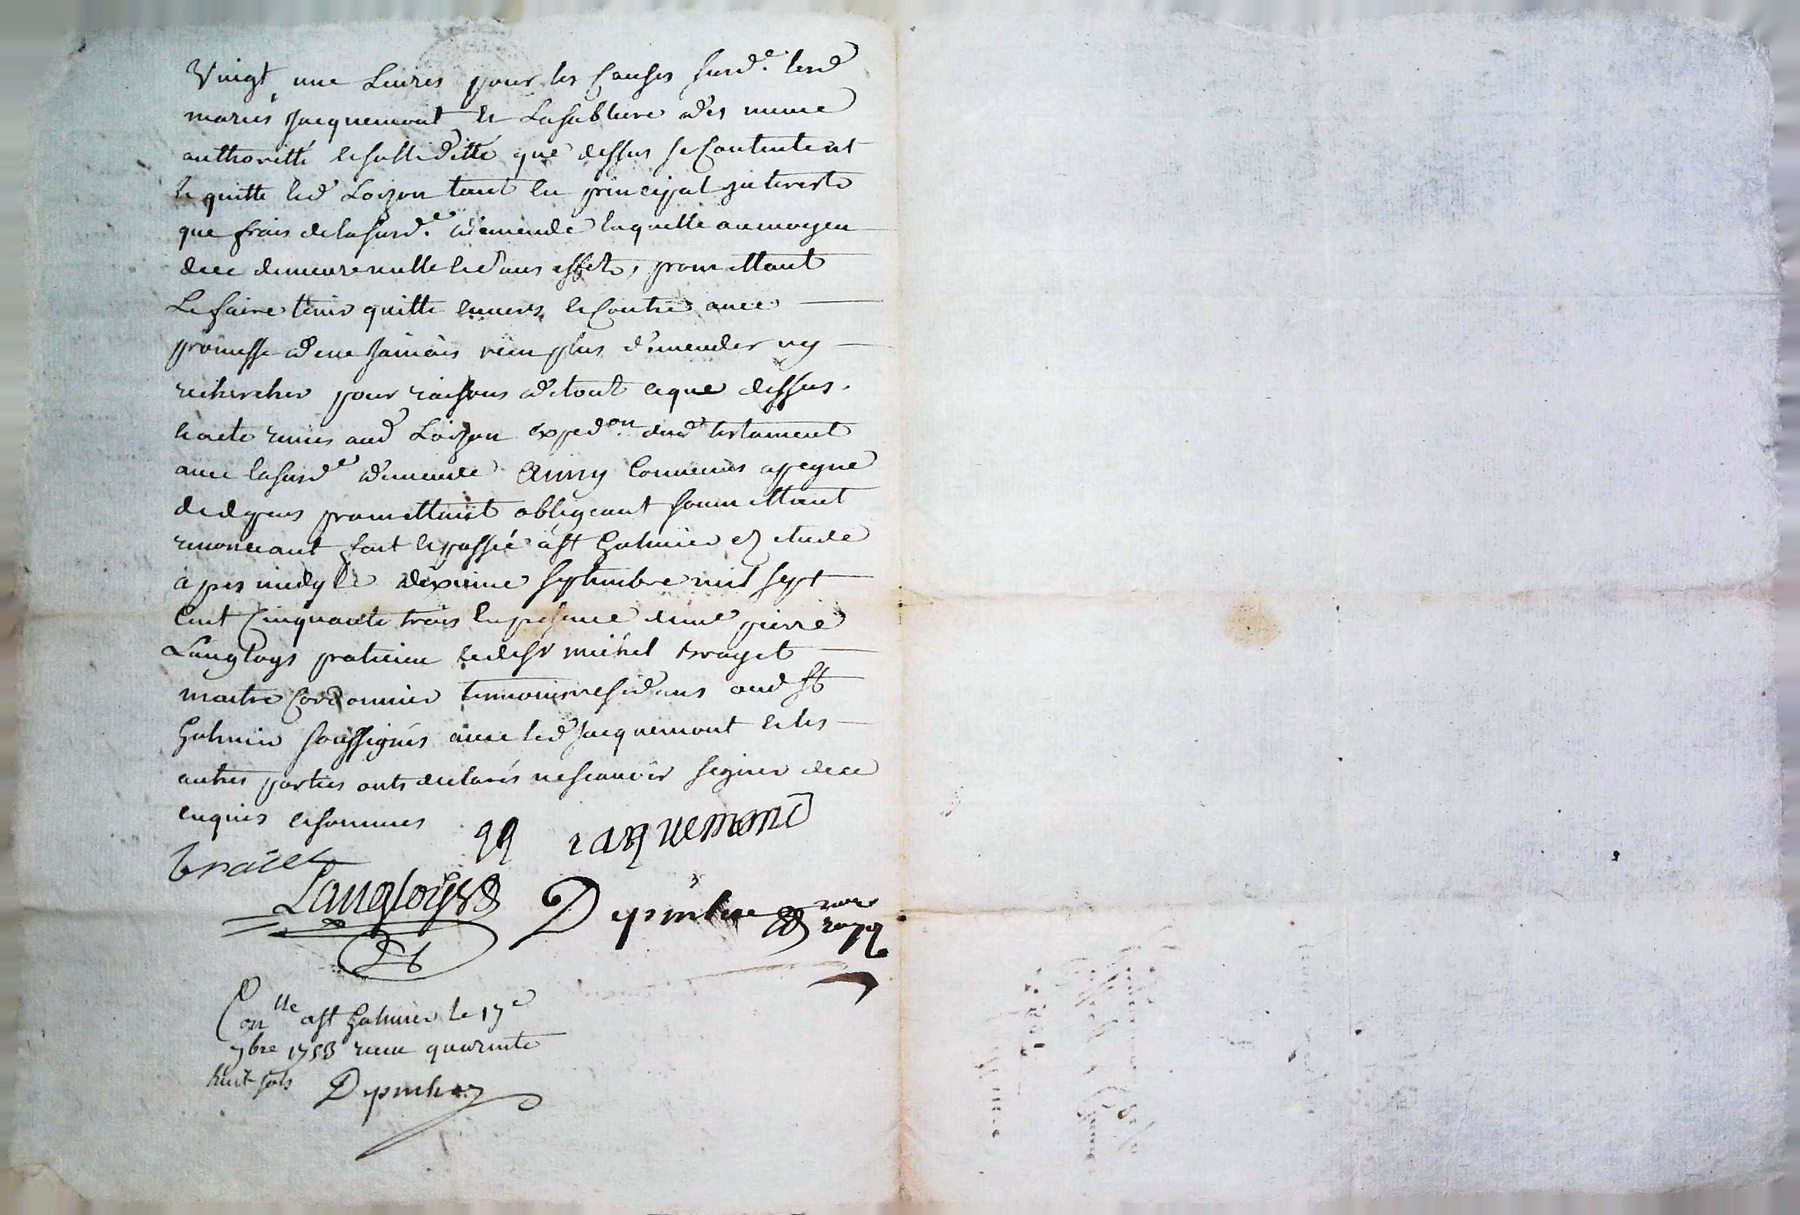 Vingt une Livres pour les Causes susd.e lesd
mariés Jacquemont et Lasabliere de meme
authoritté et solliditté que dessus se Contentent
et quitte led Loizon tant en principal interests
que frais de la susd.e demende laquelle au moyen
de ce demeure nulle et sans effets, promettant
Le faire tenir quitte envers et Contre avec
promesse de ne Jamais rien plus demender ny
rechercher pour raisons de tout ce que dessus.
et a eté remis aud Loizon exped.on dud testament
avec la susd.e demende Ainsy Convenus a peyne
de dépens promettant obligeant soumettant
renonceant fait et passé a St Galmier en etude
apres midy le dixieme septembre mil sept
Cent Cinquante trois En presence de me pierre
Langloys praticien et de sr michel trayet
maitre Cordonnier temoins residens aud St
Galmier soussignés avec led Jacquemont et les
autres parties onts declarés ne scavoir signer de ce
enquis et sommés
Jacquemond
Langloys
Depinhac
Con.lle a St Galmier le 17e
7bre 1753 receu quarente
huit sols Depinhac